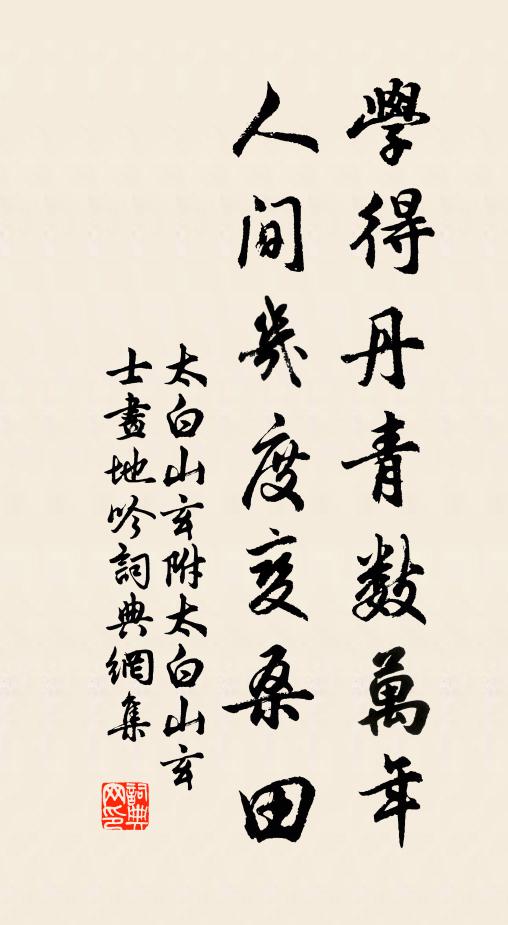 學得丹青數萬年
人間幾度變桑田
太白山玄附太白山玄
士畫地吟詞典網集
詞典网印